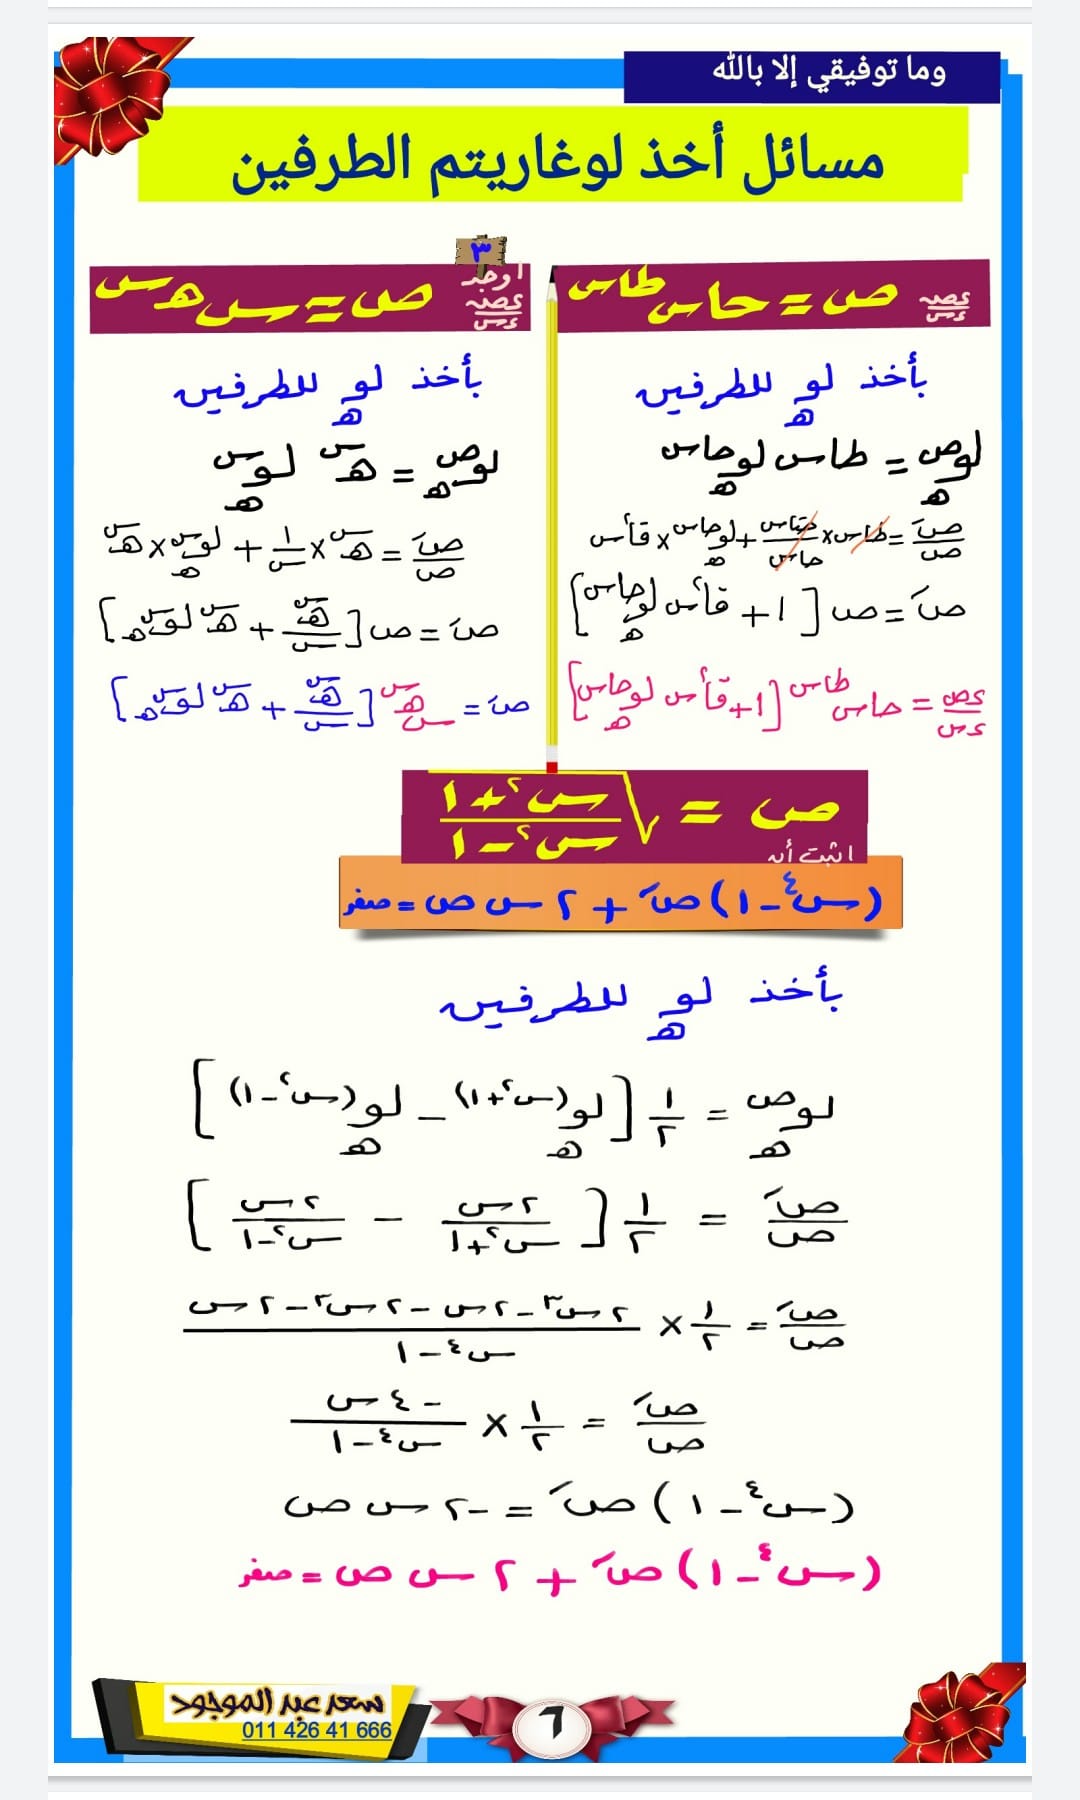 وما توفيقي إلا بالله
مسائل أخذ لوغاريتم الطرفين
٣
أوجد ءص/ءس ص = حاس^طاس
ءص/ءس ص = س^هـ^س
بأخذ لو هـ للطرفين
لو هـ ص = طاس لو هـ حاس
صَ/ص = طاس × حتاس/حاس + لو هـ حاس × قا٢س
صَ = ص [١ + قا٢س لو هـ حاس]
ءص/ءس = حاس^طاس [١ + قا٢س لو هـ حاس]
بأخذ لو هـ للطرفين
لو هـ ص = هـ^س لو هـ س
صَ/ص = هـ^س × ١/س + لو هـ س × هـ^س
صَ = ص [هـ^س/س + هـ^س لو هـ س]
صَ = س^هـ^س [هـ^س/س + هـ^س لو هـ س]
ص = √(س٢ + ١)/(س٢ – ١)
اثبت أن
(س٤ – ١) صَ + ٢ س ص = صفر
بأخذ لو هـ للطرفين
لو هـ ص = ١/٢ [لو هـ (س٢ + ١) – لو هـ (س٢ – ١)]
صَ/ص = ١/٢ [٢س/(س٢ + ١) – ٢س/(س٢ – ١)]
صَ/ص = ١/٢ × (٢س٣ – ٢س – ٢س٣ – ٢س)/(س٤ – ١)
صَ/ص = ١/٢ × –٤س/(س٤ – ١)
(س٤ – ١) صَ = –٢ س ص
(س٤ – ١) صَ + ٢ س ص = صفر
سعد عبد الموجود
011 426 41 666
٦